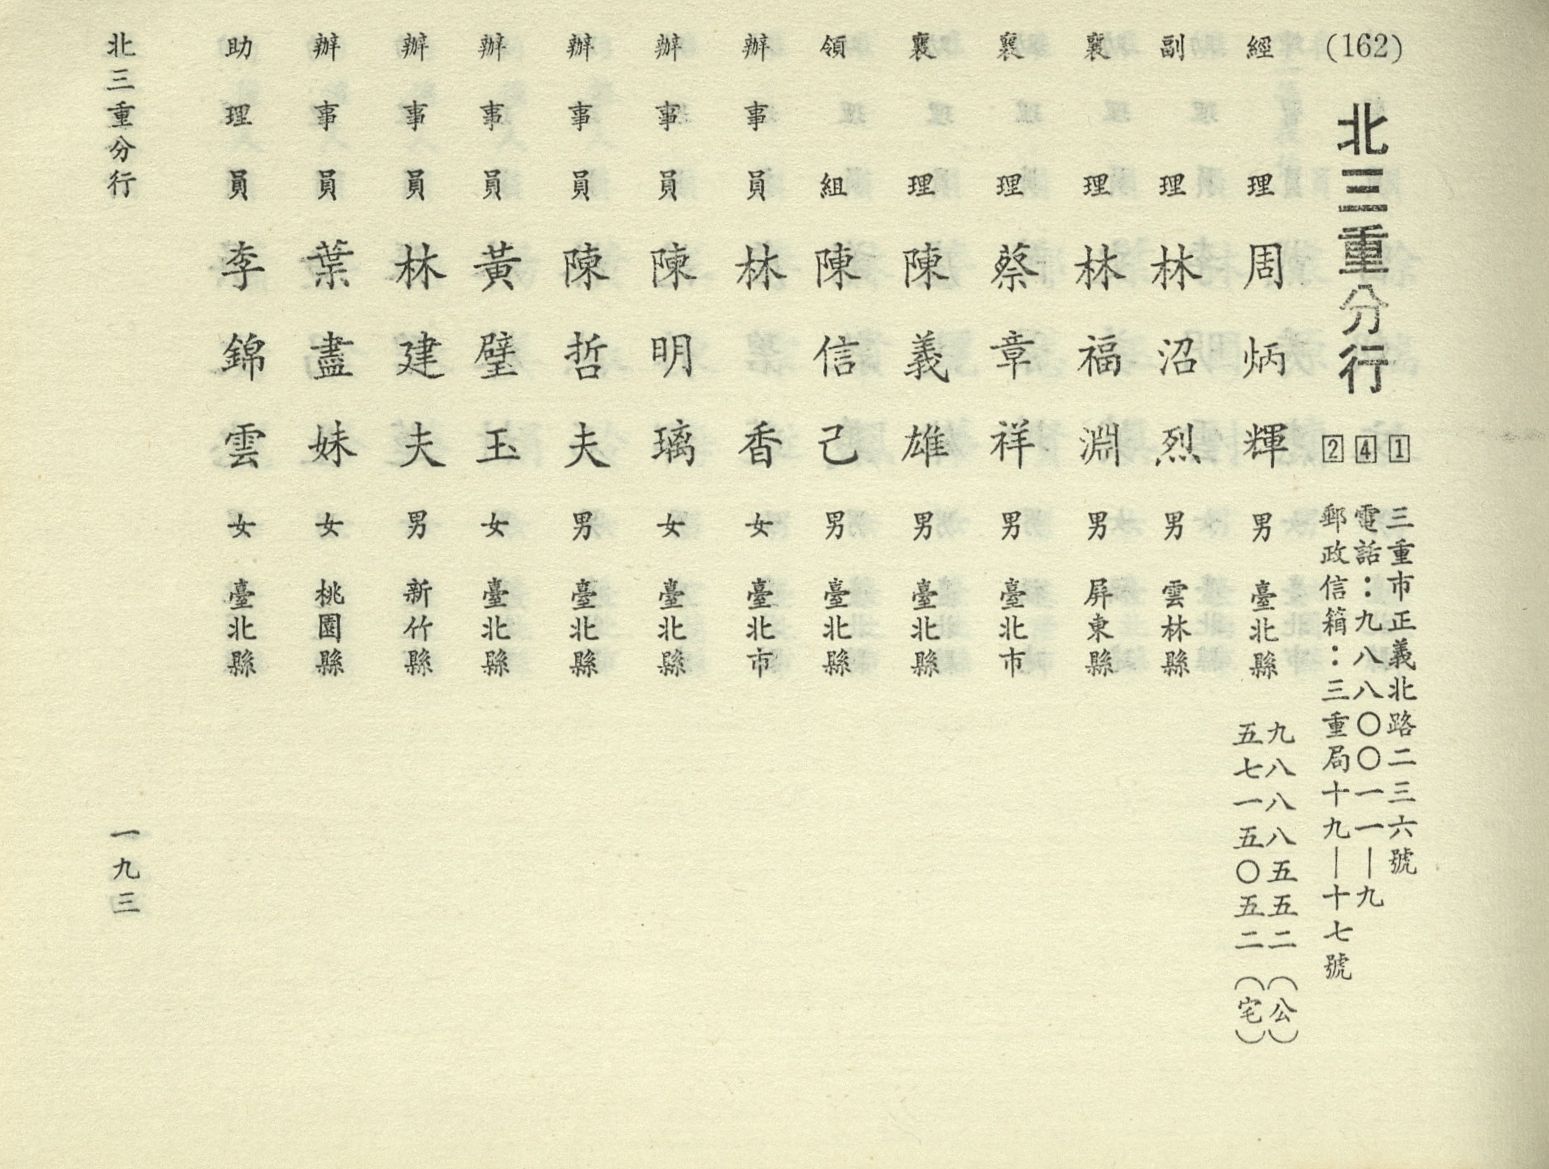 (162)
北三重分行
1 三重市正義北路二三六號
4 電話：九八八〇〇一一—九
2 郵政信箱：三重局十九—十七號
經理 周炳輝 男 臺北縣
九八八八五五二（公）
五七一五〇五二（宅）
副理 林沼烈 男 雲林縣
襄理 林福淵 男 屏東縣
襄理 蔡章祥 男 臺北市
襄理 陳義雄 男 臺北縣
領組 陳信己 男 臺北縣
辦事員 林香 女 臺北市
辦事員 陳明璃 女 臺北縣
辦事員 陳哲夫 男 臺北縣
辦事員 黃璧玉 女 臺北縣
辦事員 林建夫 男 新竹縣
辦事員 葉盡妹 女 桃園縣
助理員 李錦雲 女 臺北縣
北三重分行
一九三